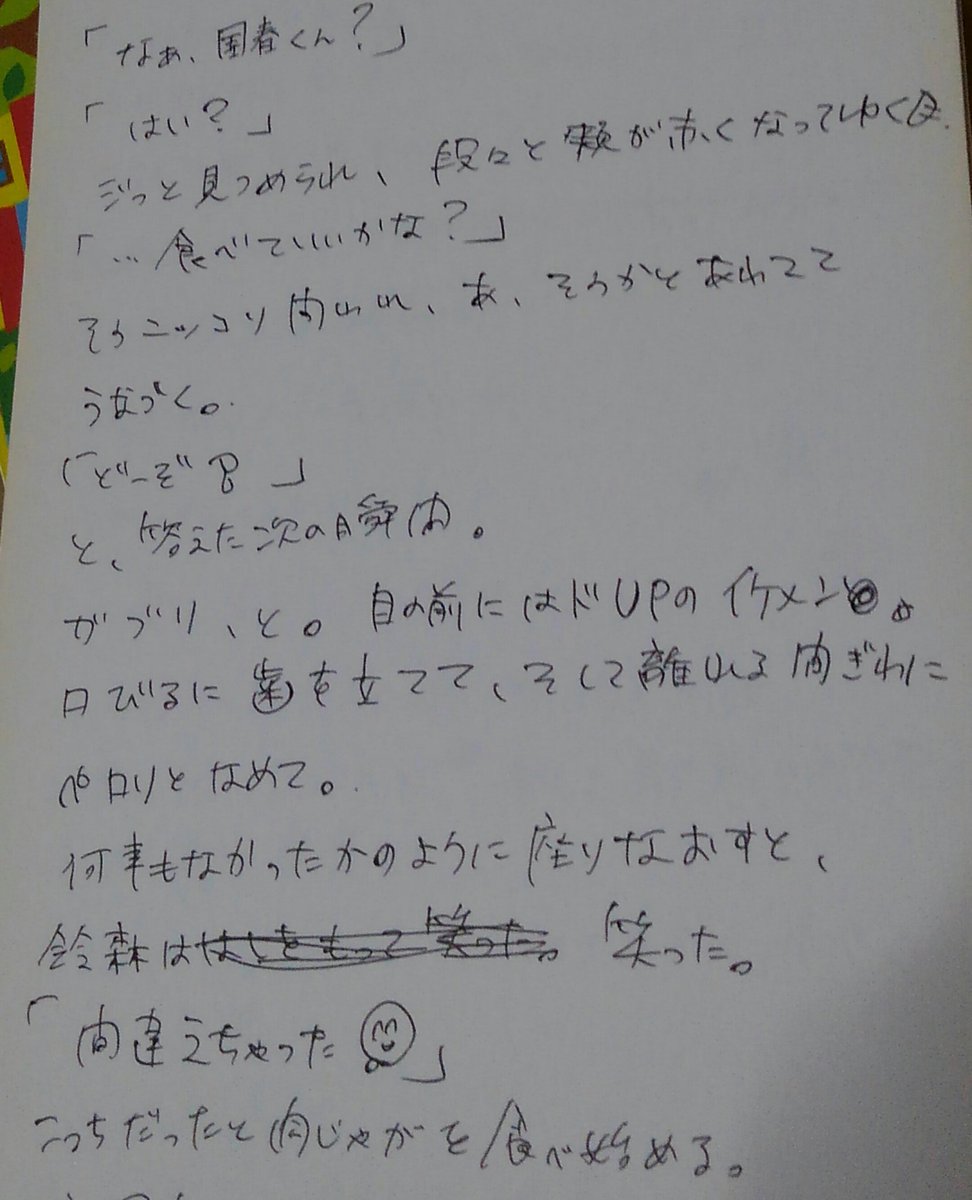 「なぁ、国春くん?」
「はい?」
ジっと見つめられ、段々と頬が赤くなってゆく
「…食べていいかな?」
そうニッコリ問われ、あ、そうかとあわてて
うなづく。
「どーぞ 」
と、答えた次の瞬間。
がブリ、と。目の前にはドUPのイケメン。
口びるに歯を立てて、そして離れる間ぎわに
ペロリとなめて。
何事もなかったかのように座りなおすと、
鈴森ははしをもって笑った。 笑った。
「間違えちゃった 」
こっちだったと肉じゃがを食べ始める。